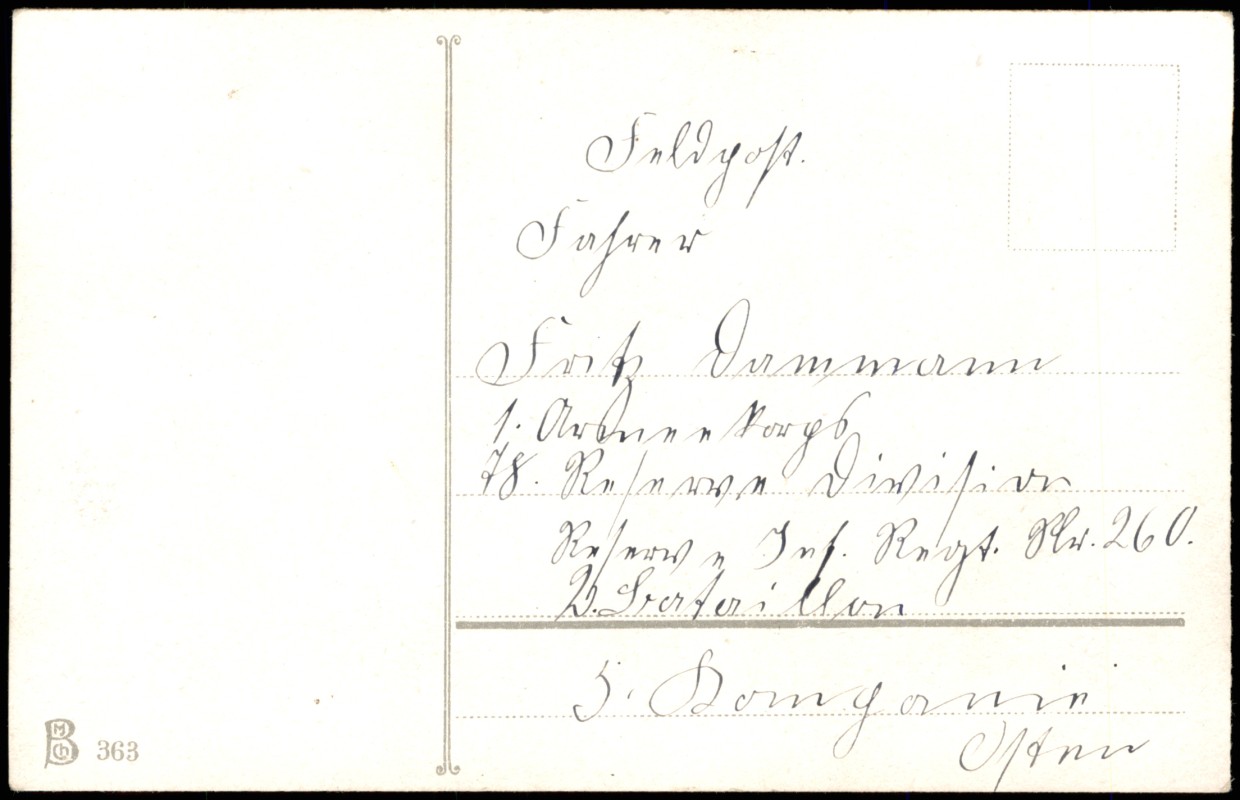 Feldpost.
Fahrer
Fritz Dammann
1. Armeekorps
78. Reserve Division
Reserve Inf. Regt. Nr. 260.
2. Bataillon
5. Kompanie
Osten
B M Ch 363